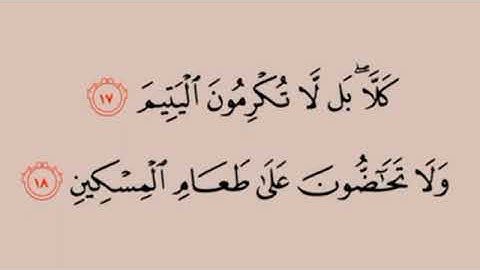 كَلَّاۖ بَل لَّا تُكْرِمُونَ ٱلْيَتِيمَ ١٧
وَلَا تَحَٰٓضُّونَ عَلَىٰ طَعَامِ ٱلْمِسْكِينِ ١٨